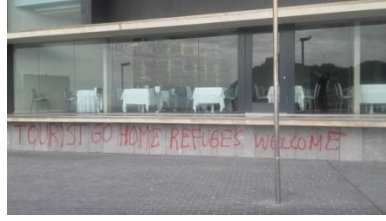 TOURIST GO HOME REFUGES WELCOME